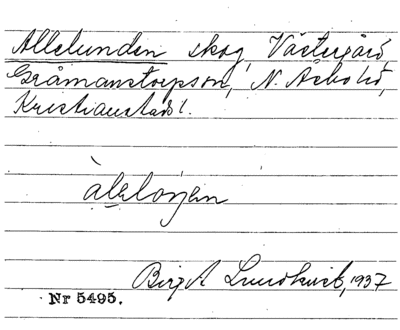 Allelunden skog, Västergård
Gråmanstorpson, N. Åsbo hd,
Kristianstads l.
Birg A Lundkvist, 1937
Nr 5495.